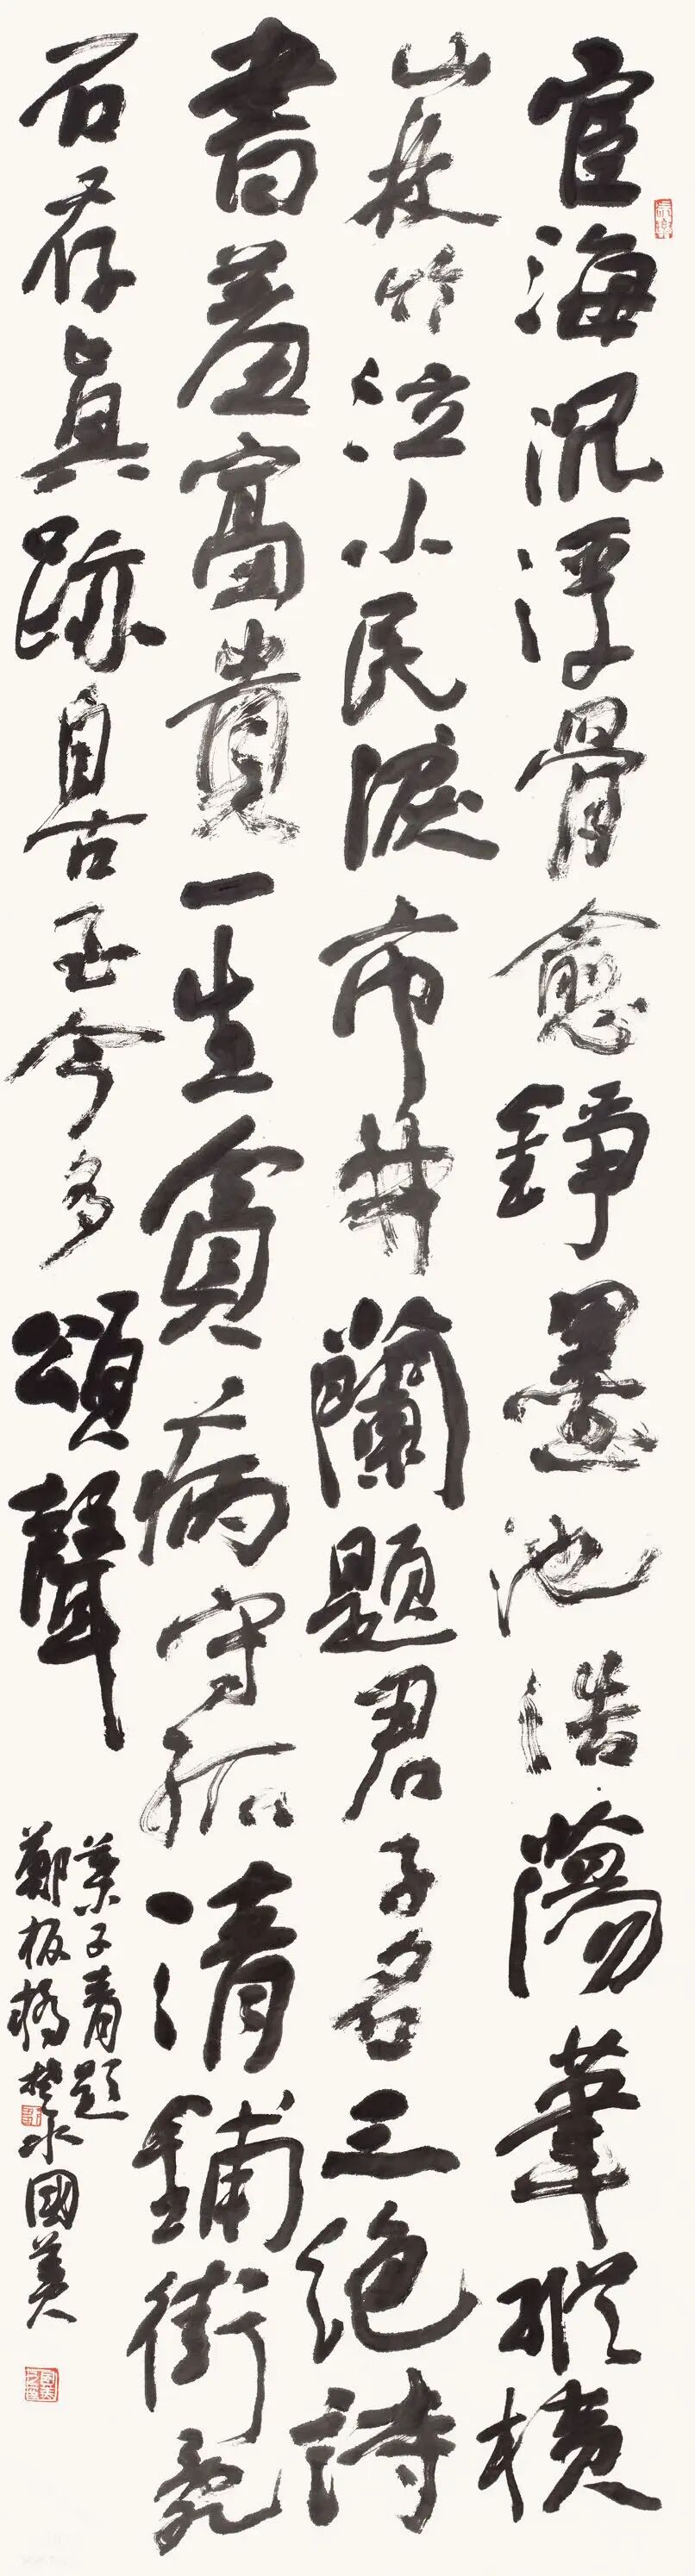 宦海沉浮骨愈錚墨池浩蕩筆縱橫
山枝竹泣小民淚市井蘭題君子名三絕詩
書羞富貴一生貧病守孤清鋪街亂
石存真跡自古至今多頌聲
葉子青題
鄭板橋 楚水國美